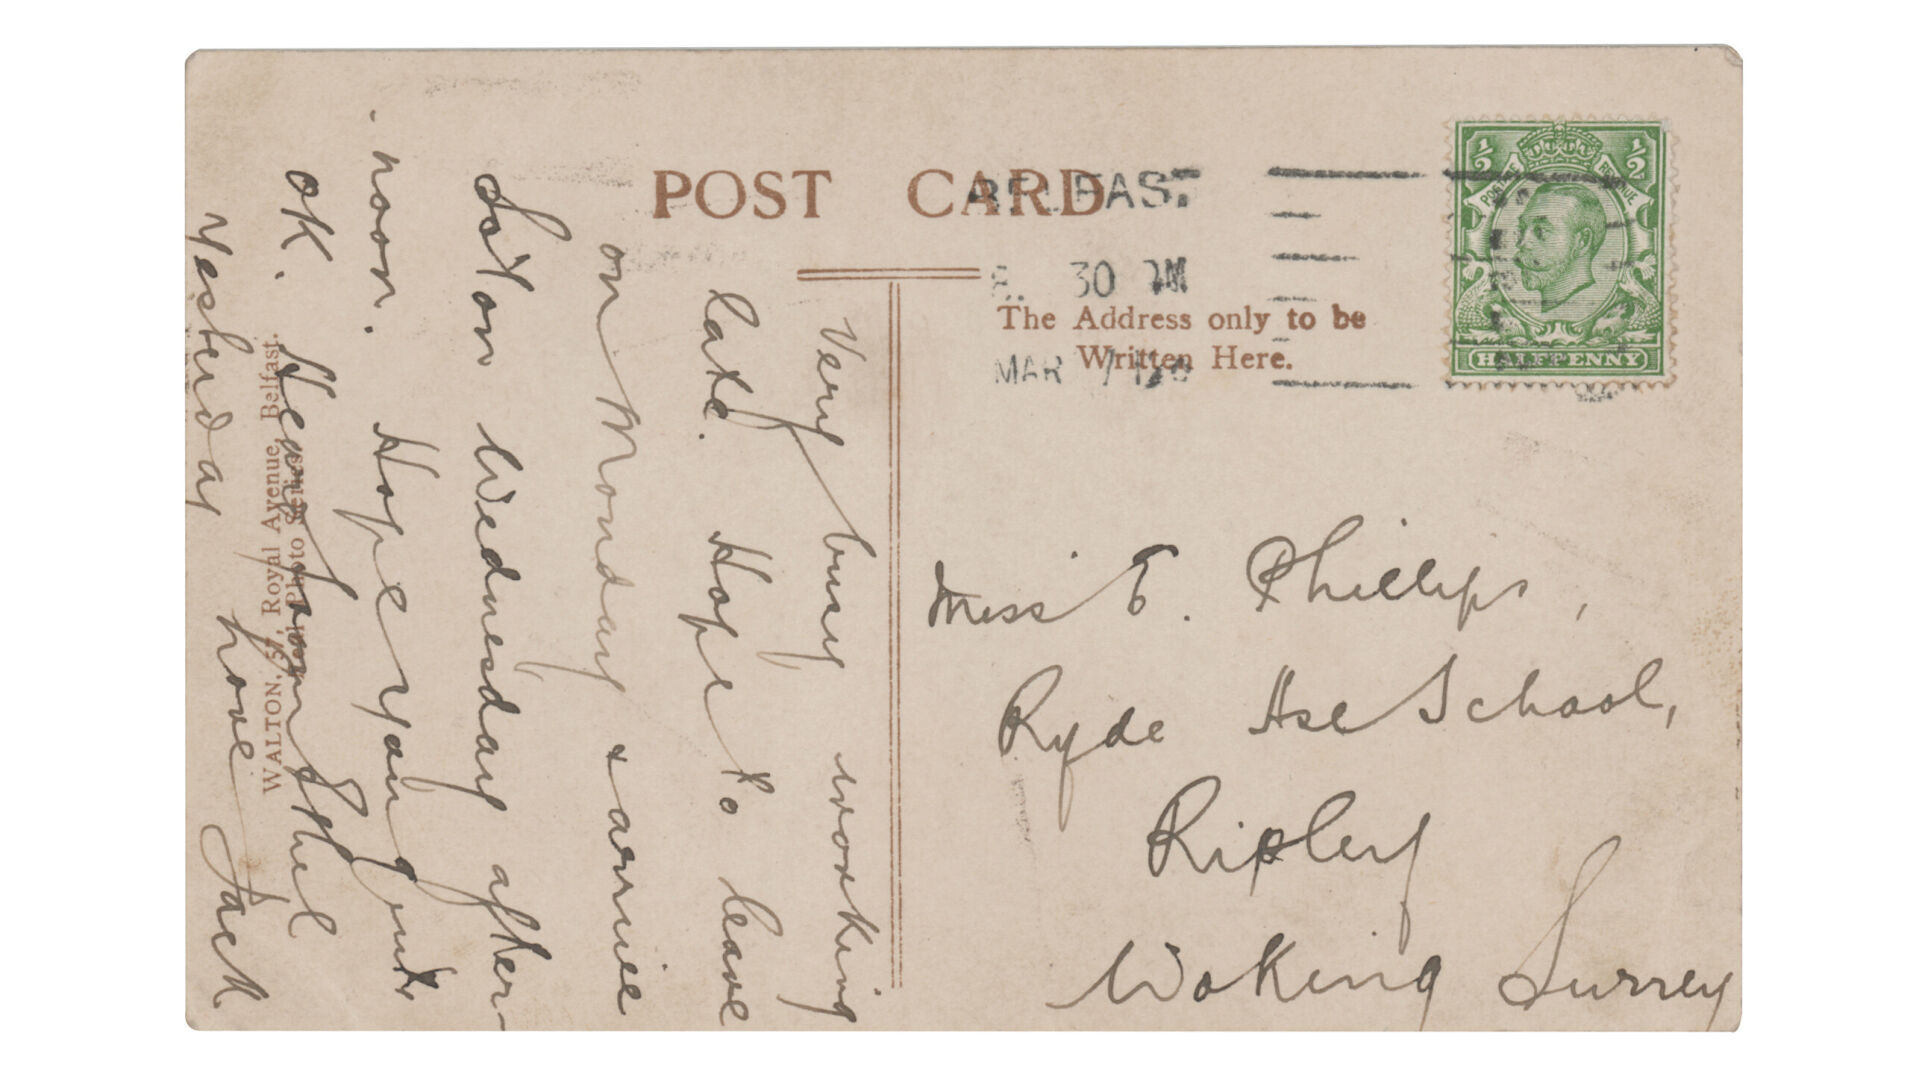 POST CARD
BELFAST
8. 30 PM
MAR
The Address only to be
Written Here.
½ ½
POSTAGE REVENUE
HALFPENNY
Miss E. Phillips,
Ryde Hse School,
Ripley
Woking Surrey
Very busy working
late. Hope to leave
on Monday & arrive
on Wednesday after-
noon. Hope you are quite
OK. Heard from Ethel
Yesterday Love Jack
WALTON, 57, Royal Avenue, Belfast.
Real Photo Series.